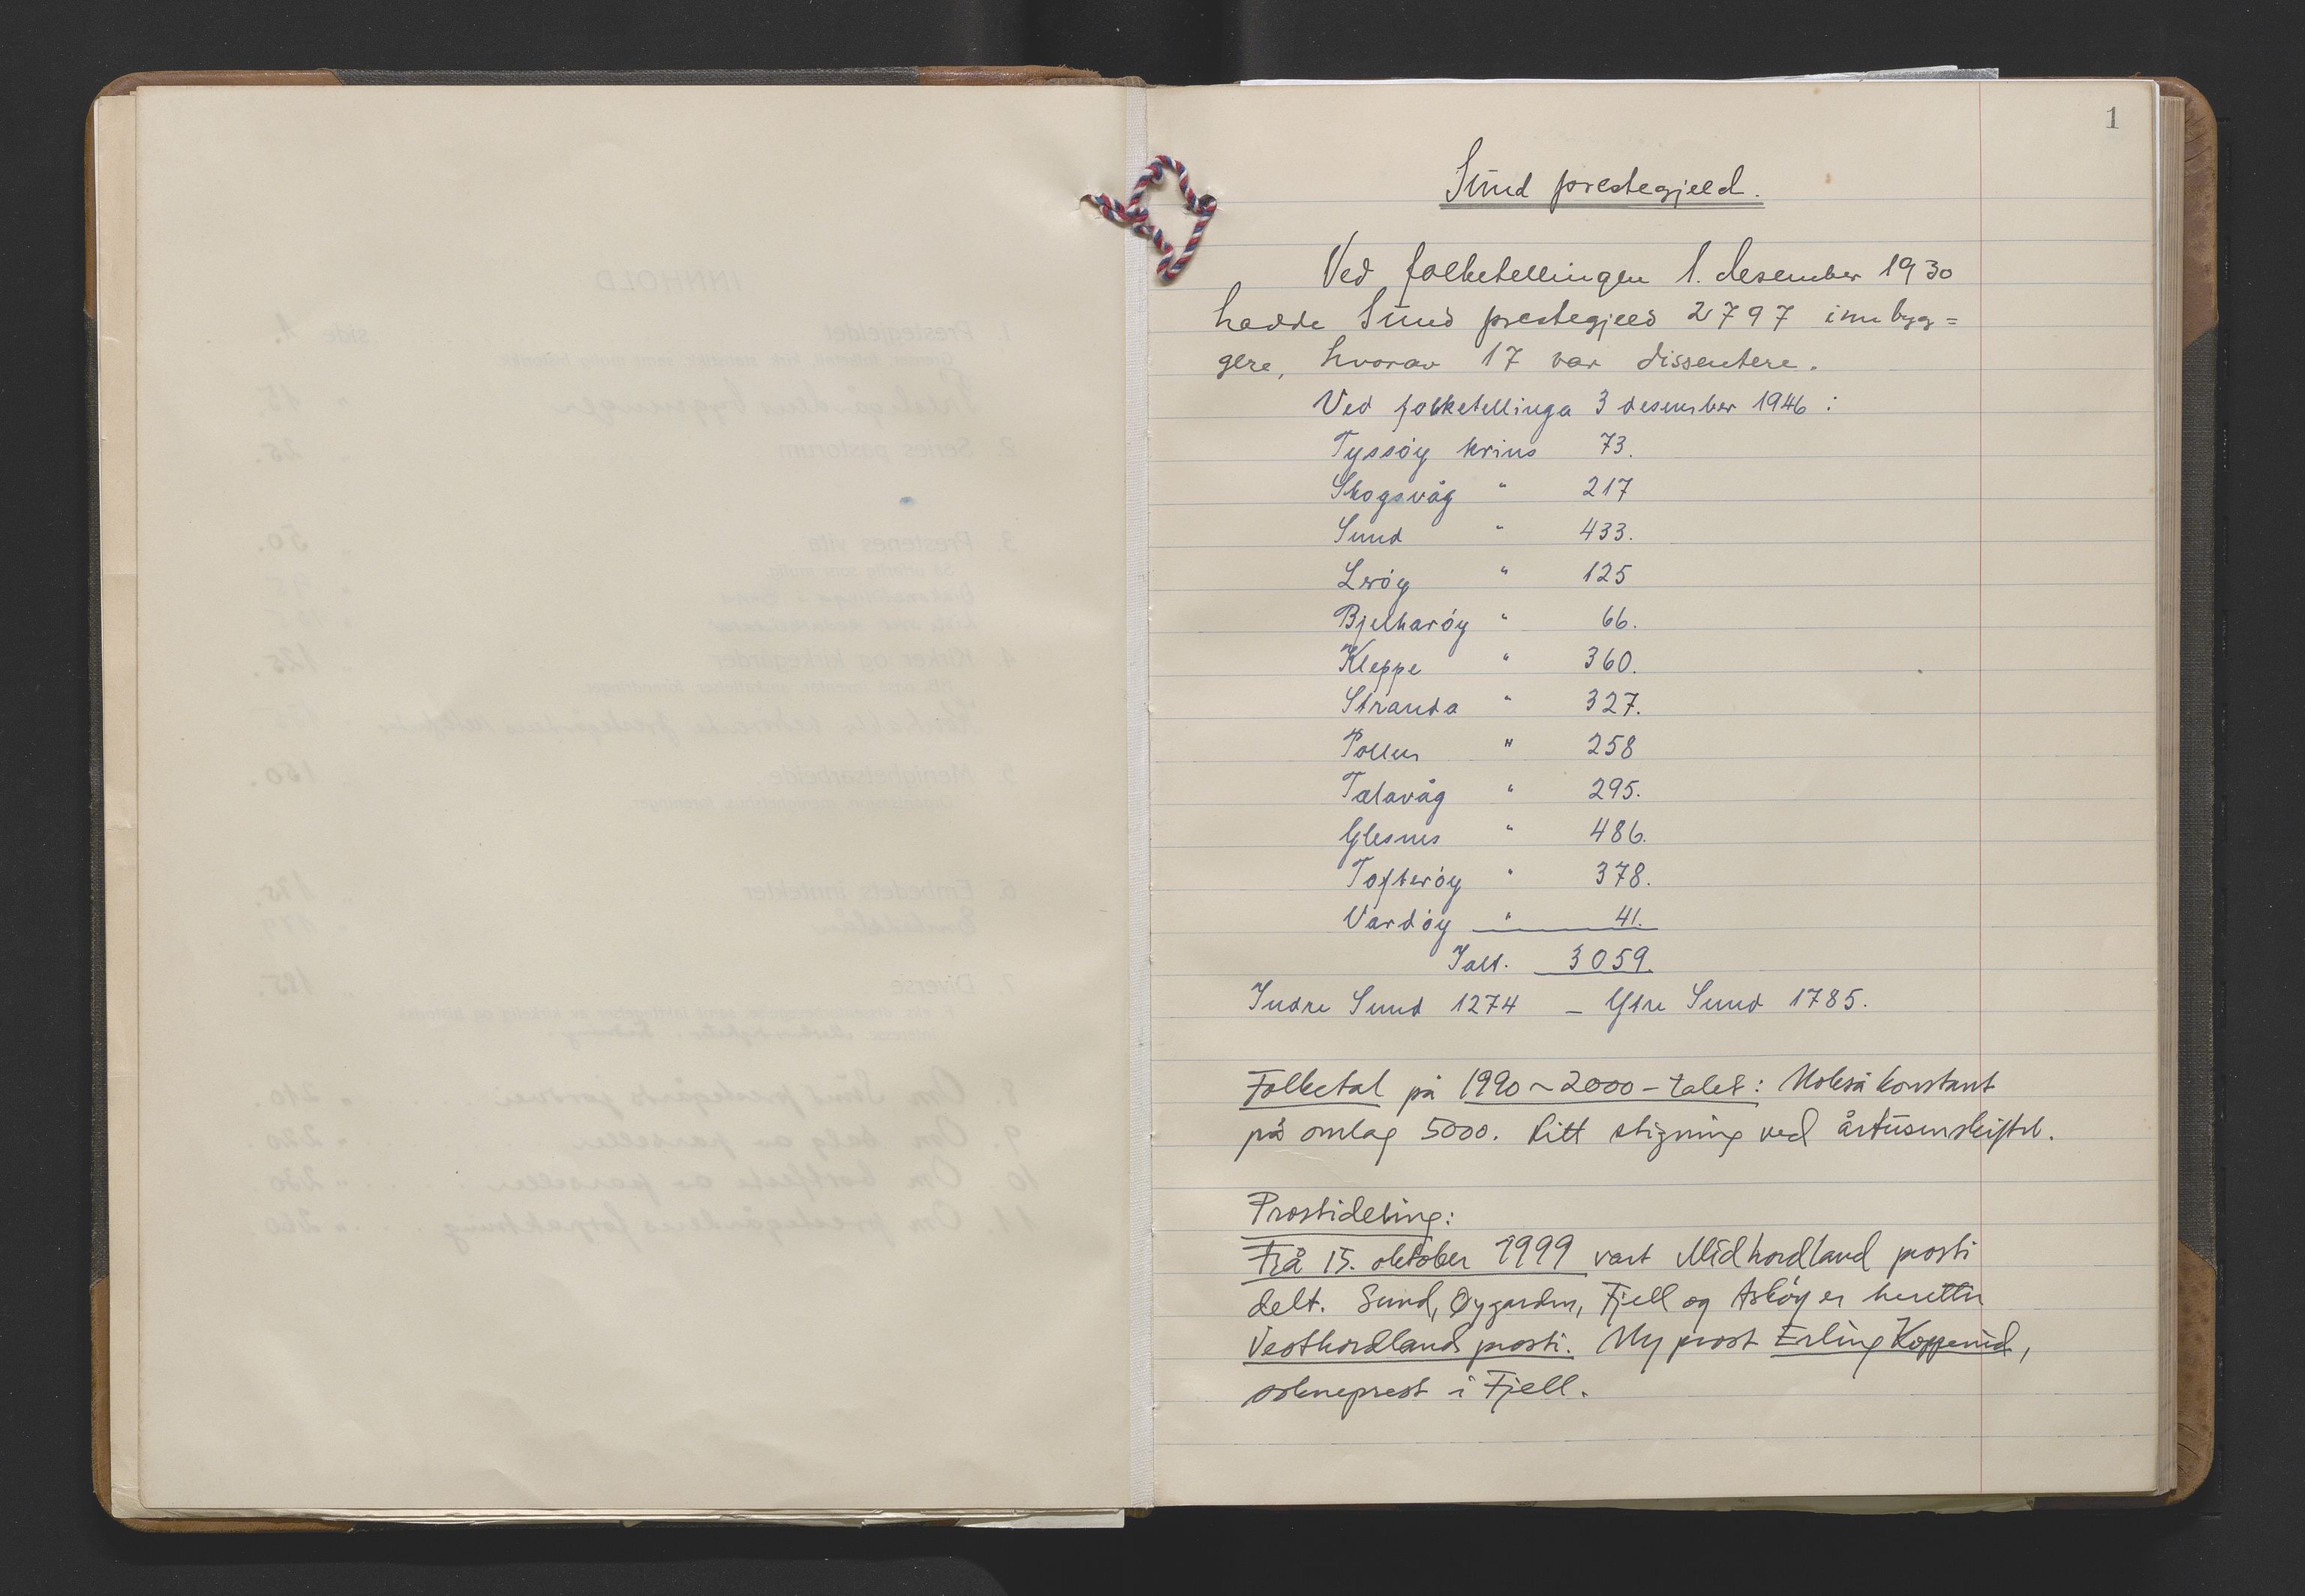 1
Sund prestegjeld.
Ved folketellingen 1. desember 1930
hadde Sund prestegjeld 2797 innbyg=
gere, hvorav 17 var dissentere.
Ved folketellinga 3 desember 1946 :
Tyssøy krins 73.
Skogsvåg " 217
Sund " 433.
Lerøy " 125
Bjelkarøy " 66.
Kleppe " 360.
Stranda " 327.
Pollen " 258
Tælavåg " 295.
Glesnes " 486.
Tofterøy " 378.
Vardøy " 41.
Ialt. 3059.
Indre Sund 1274 – Ytre Sund 1785.
Folketal på 1990 ~ 2000 – talet : Nokså konstant
på omlag 5000. Litt stigning ved årtusenskiftet.
Prostideling:
Frå 15. oktober 1999 vart Midhordland prosti
delt. Sund, Øygarden, Fjell og Askøy er heretter
Vesthordland prosti. Ny prost Erling
sokneprest i Fjell.